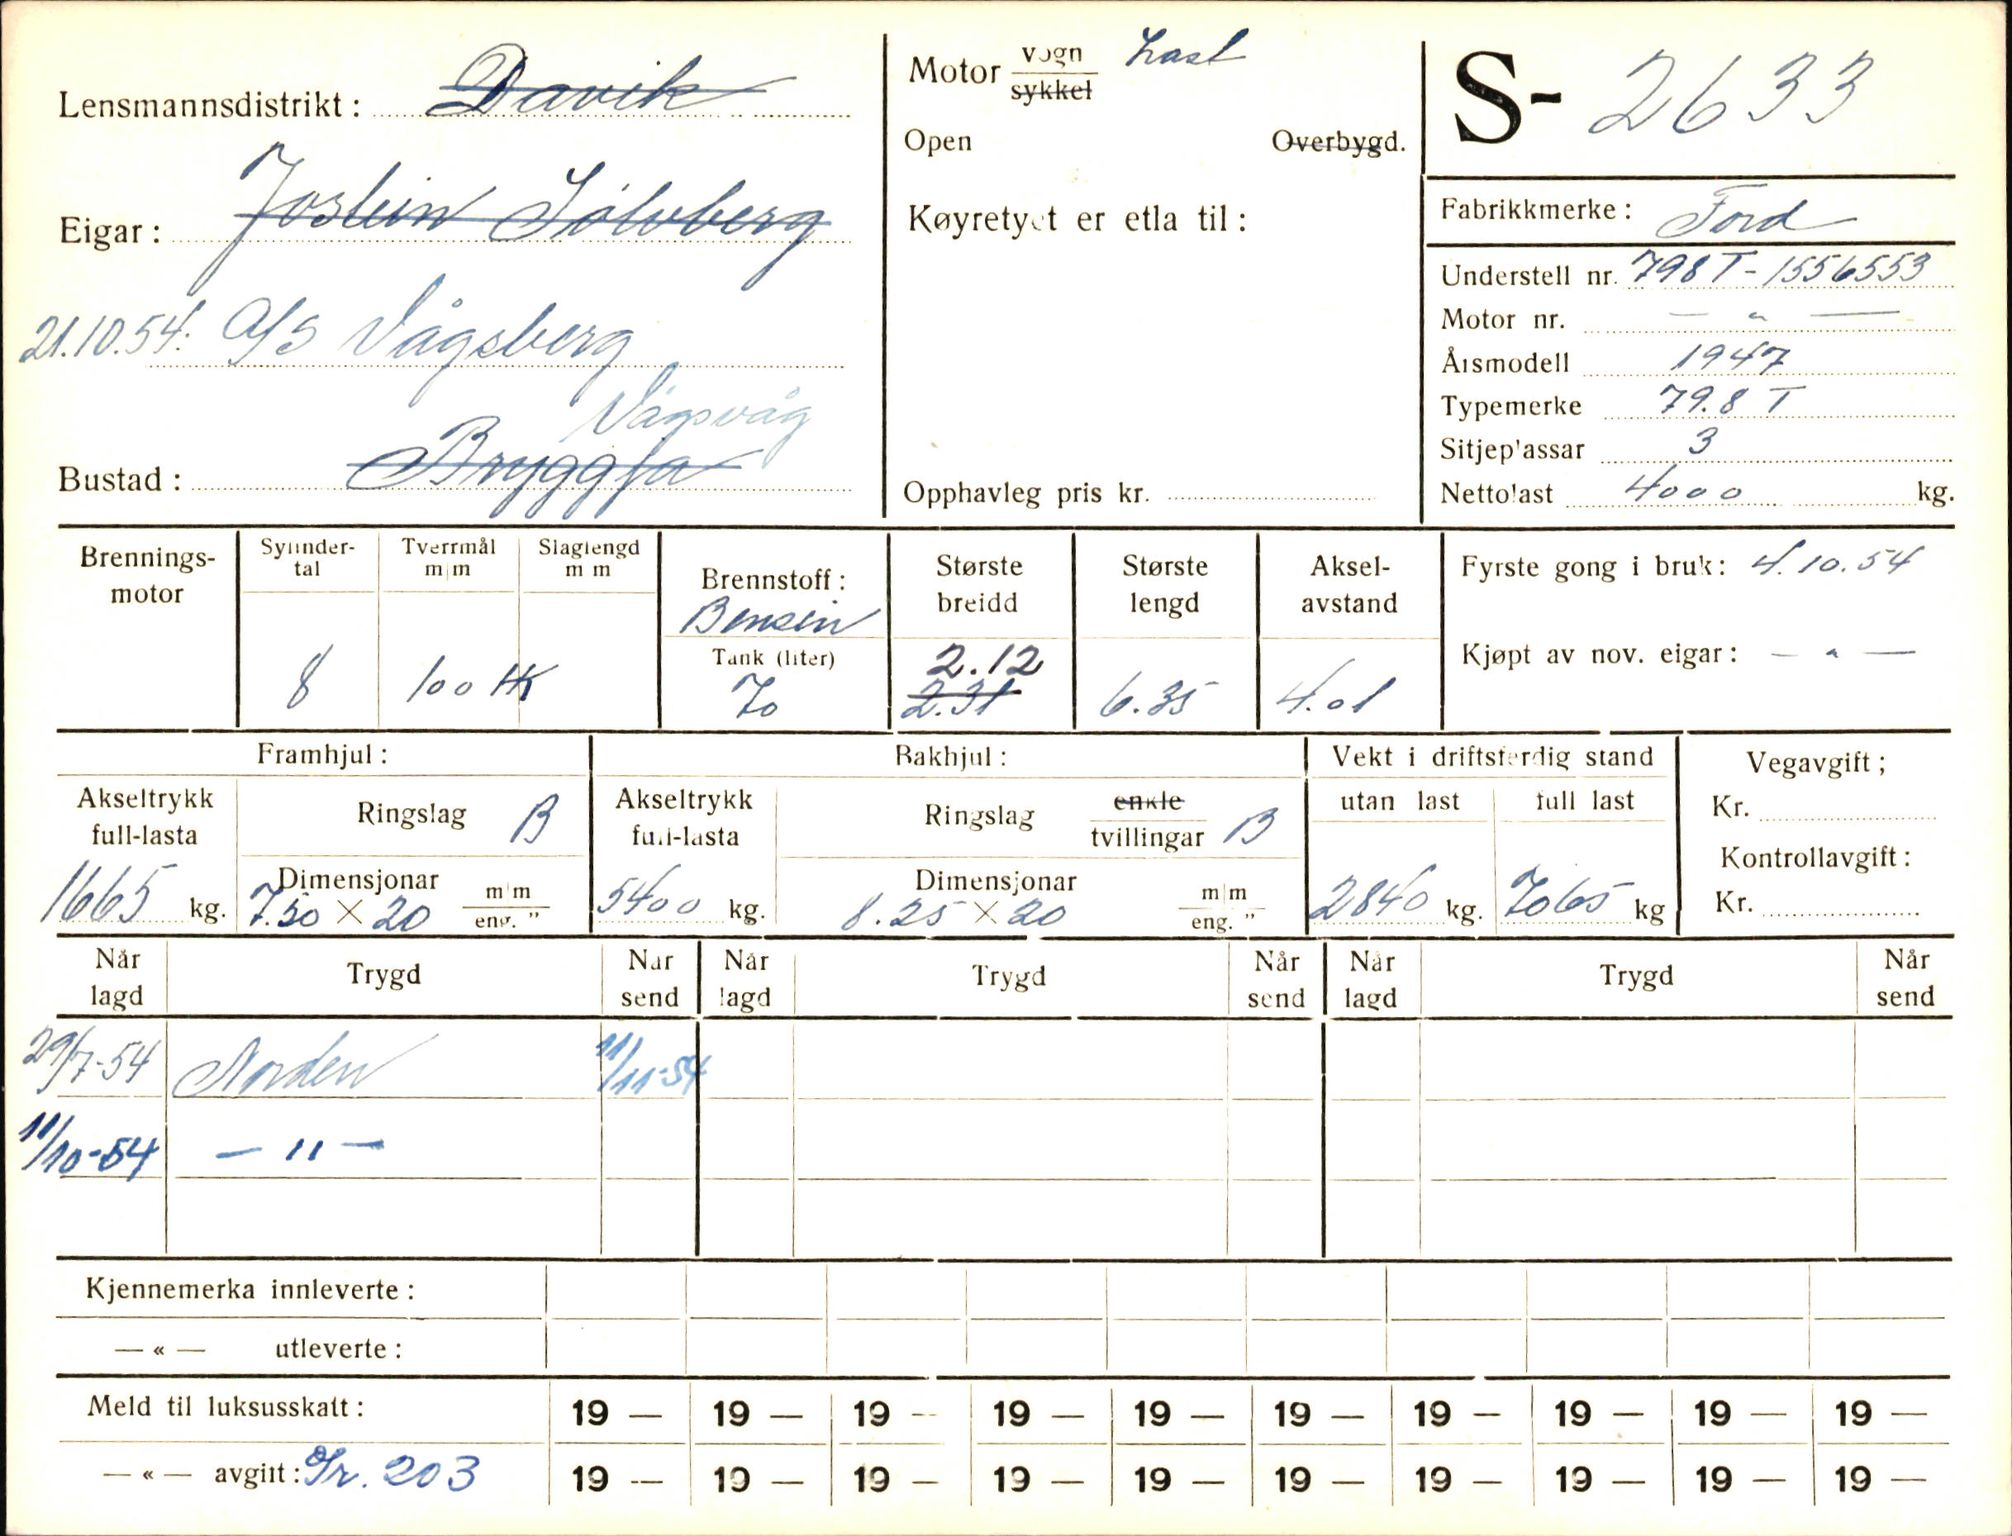 Lensmannsdistrikt: Davik
Eigar: Jostein Sölvberg
21.10.54. A/S Vågsberg
Vågsvåg
Bustad: Bryggja
Motor vogn Last
sykkel
Open Overbygd.
Køyretyet er etla til:
Opphavleg pris kr.
S- 2633
Fabrikkmerke: Ford
Understell nr. 798T-1556553
Motor nr. — " —
Årsmodell 1947
Typemerke 79.8 T
Sitjeplassar 3
Nettolast 4000 kg.
Brennings-
motor
Sylinder-
tal
8
Tverrmål
m|m
Slaglengd
m m
100 HK
Brennstoff:
Bensin
Tank (liter)
70
Største
breidd
2.12
2.31
Største
lengd
6.35
Aksel-
avstand
4.01
Fyrste gong i bruk: 4.10.54
Kjøpt av nov. eigar: — " —
Framhjul:
Akseltrykk
full-lasta
1665 kg.
Ringslag B
Dimensjonar m|m
7.50 × 20 eng. "
Bakhjul:
Akseltrykk
full-lasta
5400 kg.
Ringslag enkle
tvillingar B
Dimensjonar m|m
8.25 × 20 eng. "
Vekt i driftsferdig stand
utan last full last
2840 kg. 7065 kg
Vegavgift;
Kr.
Kontrollavgift:
Kr.
Når
lagd Trygd Når
send Når
lagd Trygd Når
send Når
lagd Trygd Når
send
29/7-54 Norden 11/11-54
11/10-54 — " —
Kjennemerka innleverte:
— « — utleverte:
Meld til luksusskatt: 19 — 19 — 19 — 19 — 19 — 19 — 19 — 19 — 19 — 19 —
— « — avgift: Gr. 203 19 — 19 — 19 — 19 — 19 — 19 — 19 — 19 — 19 — 19 —